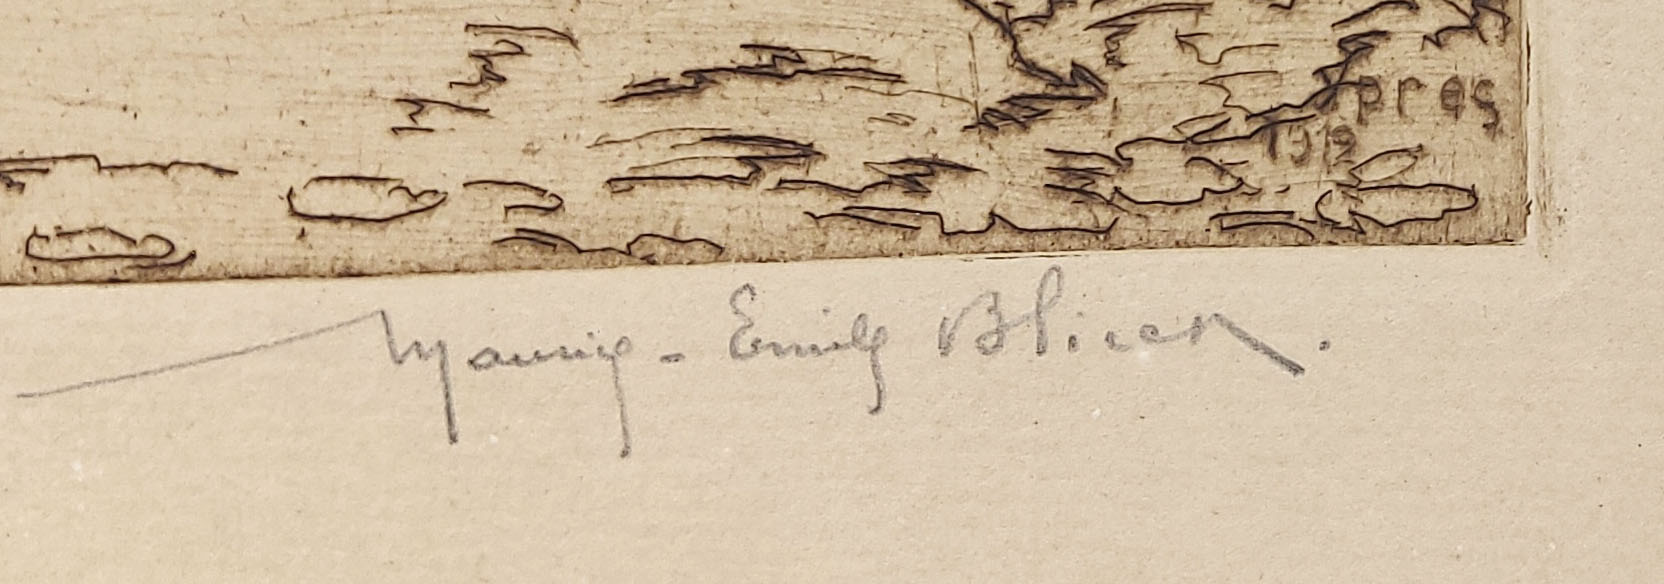 Ypres
1919
Maurice-Emile Blieck.